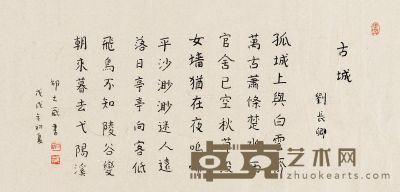 古城
劉長卿
孤城上與白雲
萬古蕭條楚水
官舍已空秋草沒
女墻猶在夜烏
平沙渺渺迷人遠
落日亭亭向客低
飛鳥不知陵谷變
朝來暮去弋陽溪
書
戊戌年初夏
卓克艺术网